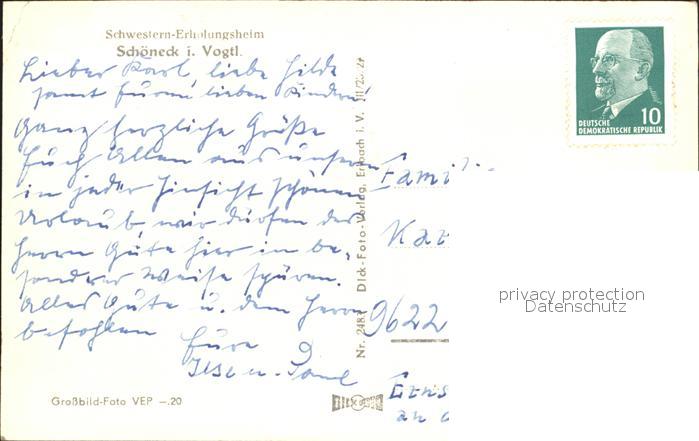 Schwestern-Erholungsheim
Schöneck i. Vogtl.
Lieber Karl, liebe Hilde
samt Euren lieben Kindern!
Ganz herzliche Grüße
Euch Allen aus unserem
in jeder Hinsicht schönen
Urlaub, wir dürfen des
Herrn Güte hier in be-
sonderer Weise spüren.
Alles Gute u. dem Herrn
befohlen
Eure
Ilse u. Paul
Großbild-Foto VEP -.20
Dick-Foto-Verlag, Erlbach i. V.
DICK
10
DEUTSCHE
DEMOKRATISCHE REPUBLIK
Famil
Kar
9622
privacy protection
Datenschutz